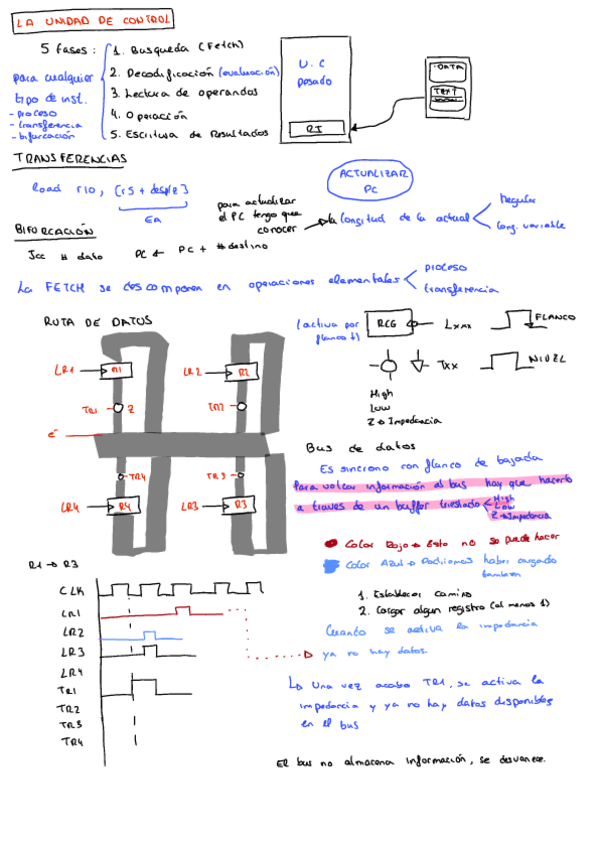 LA UNIDAD DE CONTROL
5 fases:
1. Busqueda (Fetch)
2. Decodificación (evaluación)
3. Lectura de operandos
4. Operación
5. Escritura de Resultados
para cualquier
tipo de inst.
- proceso
- transferencia
- bifurcación
U.C
RI
DATA
TEXT
TRANSFERENCIAS
load r10, [r5 + desplz]
EA
ACTUALIZAR
PC
para actualizar
el PC tengo que
conocer
la longitud de la actual
Regular
long. variable
BIFURCACIÓN
Jcc # dato PC ← PC + #destino
La FETCH se descompone en operaciones elementales
proceso
transferencia
RUTA DE DATOS
LR1
R1
LR2
R2
TR1
Z
TR2
TR4
TR3
LR4
R4
LR3
R3
(activa por
flanco ↓)
REG
Lxxx
FLANCO
Txx
NIVEL
High
Low
Z → Impedancia
Bus de datos
Es sincrono con flanco de bajada
Para volcar información al bus hay que hacerlo
a traves de un buffer triestado
High
Low
Z-Impedancia
Color Rojo → Esto no se puede hacer
Color Azul → Podriamos haber cargado
tambien
1. Establecer camino
2. Cargar algun registro (al menos 1)
Cuando se activa la impedancia
ya no hay datos.
R1 → R3
CLK
LR1
LR2
LR3
LR4
TR1
TR2
TR3
TR4
↳ Una vez acaba TR1, se activa la
impedancia y ya no hay datos disponibles
en el bus
El bus no almacena información, se desvanece.